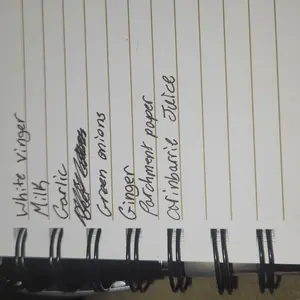 White vinger
Milk
Garlic
Green onions
Ginger
Parchment paper
Calinbarrie Juice